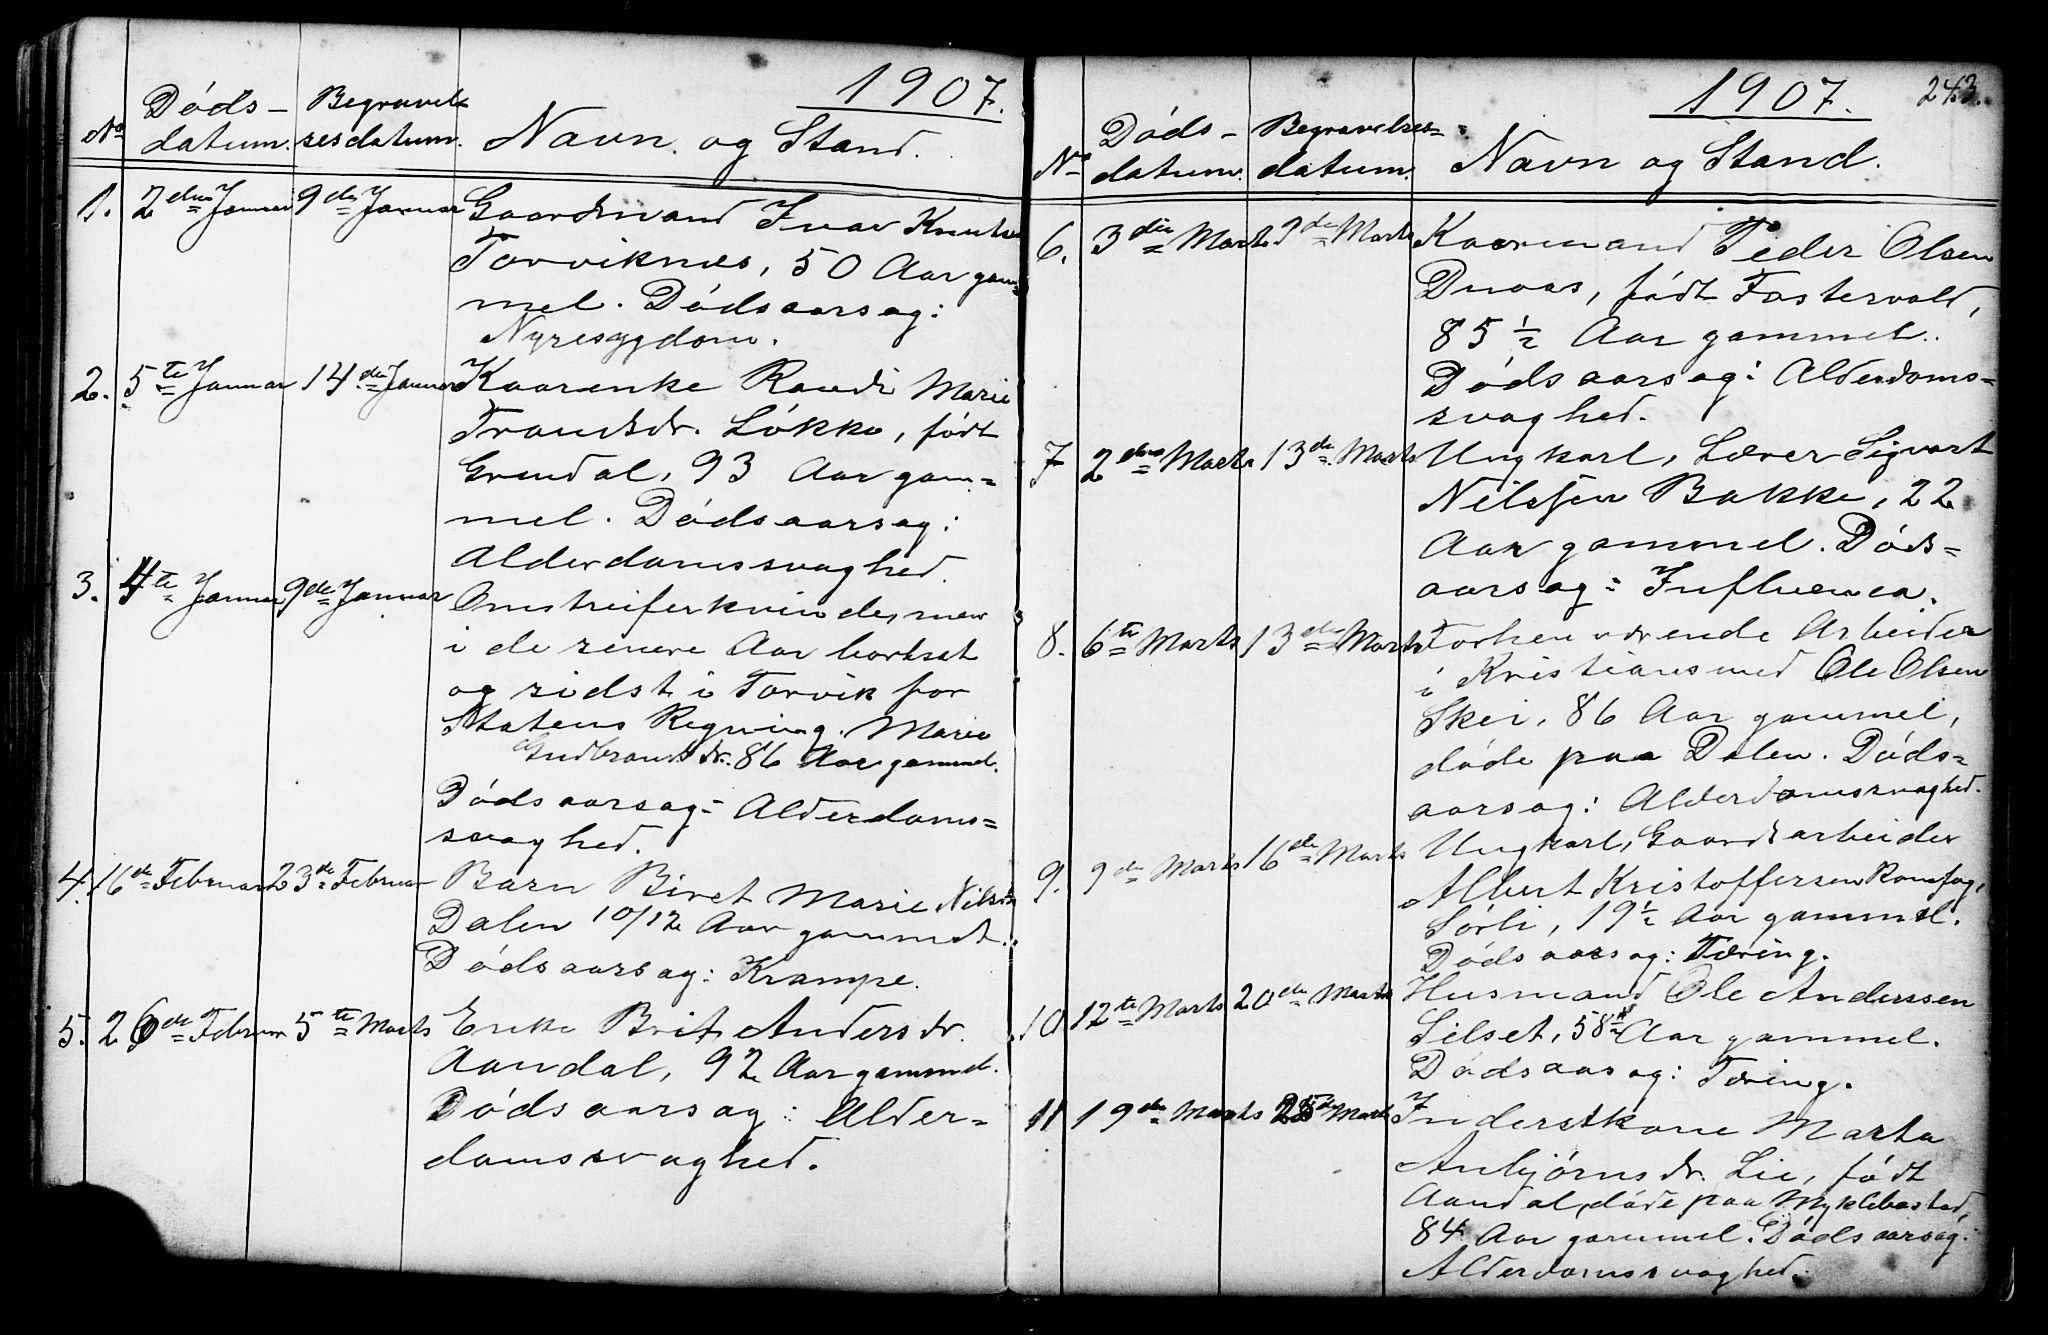 1907.
No Døds- Begravel-
datum. sesdatum. Navn og Stand.
1. 2den Januar 9de Januar Gaardmand Ivar Knutsen
Torviknes, 50 Aar gam-
mel. Dødsaarsag:
Nyresygdom.
2. 5te Januar 14de Januar Kaarenke Randi Marie
Trondsdr. Løkke, født
Grendal, 93 Aar gam-
mel. Dødsaarsag:
Alderdomssvaghed.
3. 4te Januar 9de Januar Omstreiferkvinde, men
i de senere Aar bortsat
og sidst i Torvik for
Statens Regning. Marie
Gudbrandsdr. 86 Aar gammel.
Dødsaarsag: Alderdoms-
svaghed.
4. 16de Februar 23de Februar Barn Biret Marie Nilsdr.
Dalen 10/12 Aar gammel.
Dødsaarsag: Krampe.
5. 26de Februar 5te Marts Enke Brit Andersdr.
Aandal, 92 Aar gammel.
Dødsaarsag: Alder-
domssvaghed.
1907. 243.
No Døds- Begravelses-
datum. datum. Navn og Stand.
6. 3die Marts 9de Marts Kaarmand Peder Olsen
Duaas, født Fostervold,
85 1/2 Aar gammel.
Dødsaarsag: Alderdoms-
svaghed.
7 2den Marts 13de Marts Ungkarl, Lærer Sigvart
Nilssen Bakke, 22
Aar gammel. Døds-
aarsag: Influenca.
8. 6te Marts 13de Marts Forhenværende Arbeider
i Kristiansund Ole Olsen
Skei, 86 Aar gammel,
døde paa Dalen. Døds-
aarsag: Alderdomssvaghed.
9. 9de Marts 16de Marts Ungkarl, Gaardsarbeider
Albert Kristoffersen
Sørli, 19 1/2 Aar gammel.
Dødsaarsag: Tæring.
10 12te Marts 20de Marts Husmand Ole Anderssen
Silset, 58 Aar gammel.
Dødsaarsag: Tæring.
11 19de Marts 25de Marts Inderstkone Marta
Anbjørnsdr. Lie, født
Aandal, døde paa Myklebostad,
84 Aar gammel. Dødsaarsag:
Alderdomssvaghed.